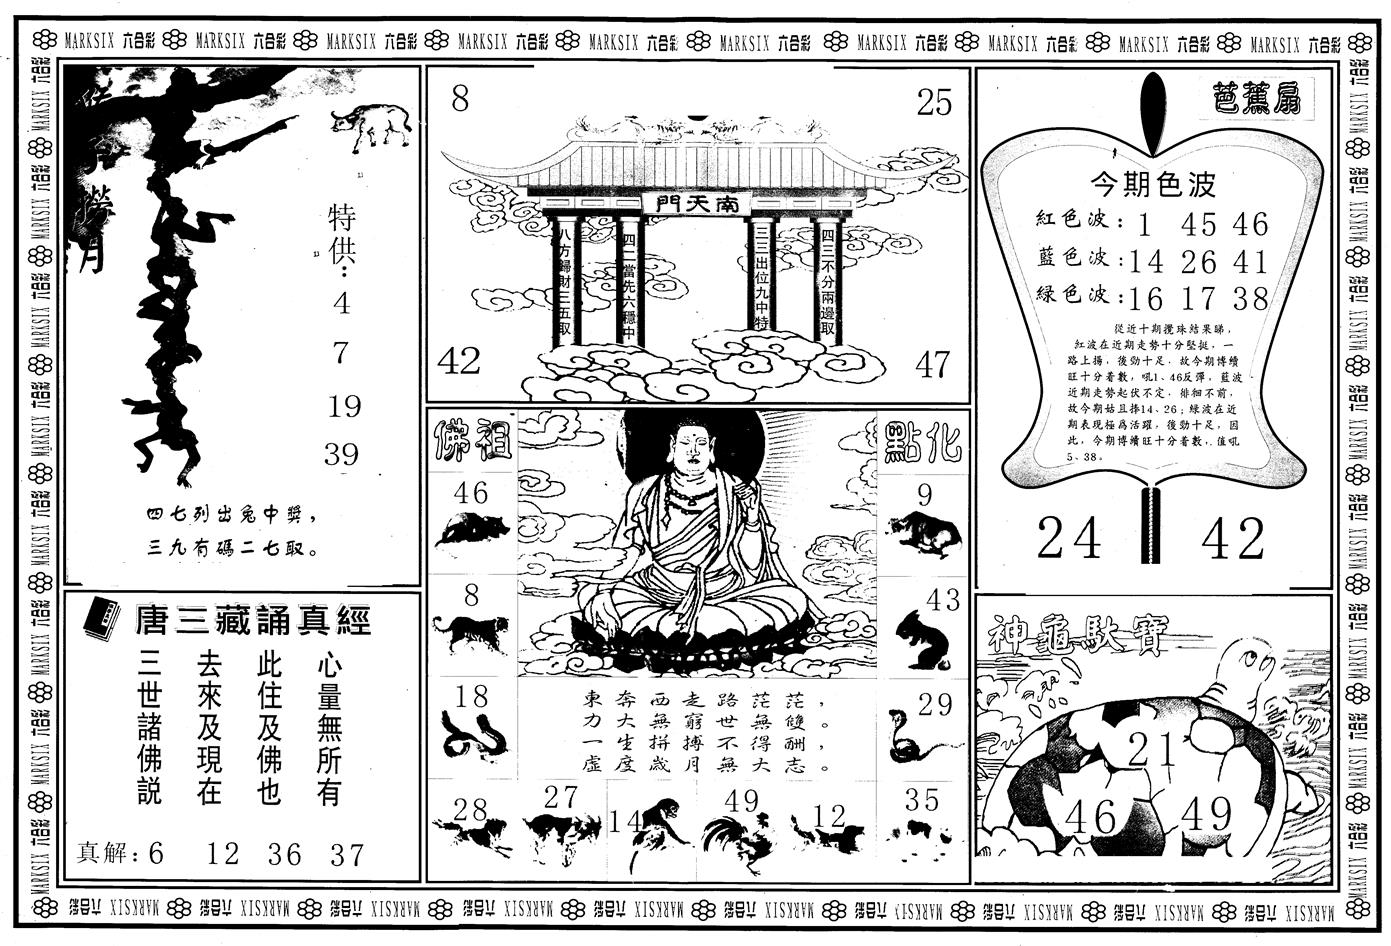 MARKSIX 六合彩 MARKSIX 六合彩 MARKSIX 六合彩 MARKSIX 六合彩 MARKSIX 六合彩 MARKSIX 六合彩 MARKSIX 六合彩 MARKSIX 六合彩 MARKSIX 六合彩 MARKSIX 六合彩
撈
月
特供：
4
7
19
39
四七列出兔中獎，
三九有碼二七取。
8
25
南天門
八方歸財三五取
四二當先六穩中
三三出位九中特
四三不分兩邊取
42
47
芭蕉扇
今期色波
紅色波：1 45 46
藍色波：14 26 41
綠色波：16 17 38
從近十期攪珠結果睇，
紅波在近期走勢十分堅挺，一
路上揚，後勁十足，故今期博續
旺十分着數，吼1、46反彈，藍波
近期走勢起伏不定，徘徊不前，
故今期姑且捧14、26；綠波在近
期表現極爲活躍，後勁十足，因
此，今期博續旺十分着數，值吼
5、38。
24
42
唐三藏誦真經
心量無所有
此住及佛也
去來及現在
三世諸佛説
真解：6 12 36 37
佛祖
點化
46
8
18
28
27
14
49
12
35
9
43
29
東奔西走路茫茫，
力大無窮世無雙。
一生拼搏不得酬，
虛度歲月無大志。
神龜馱寶
21
46
49
MARKSIX 六合彩 MARKSIX 六合彩 MARKSIX 六合彩 MARKSIX 六合彩 MARKSIX 六合彩 MARKSIX 六合彩 MARKSIX 六合彩 MARKSIX 六合彩 MARKSIX 六合彩 MARKSIX 六合彩